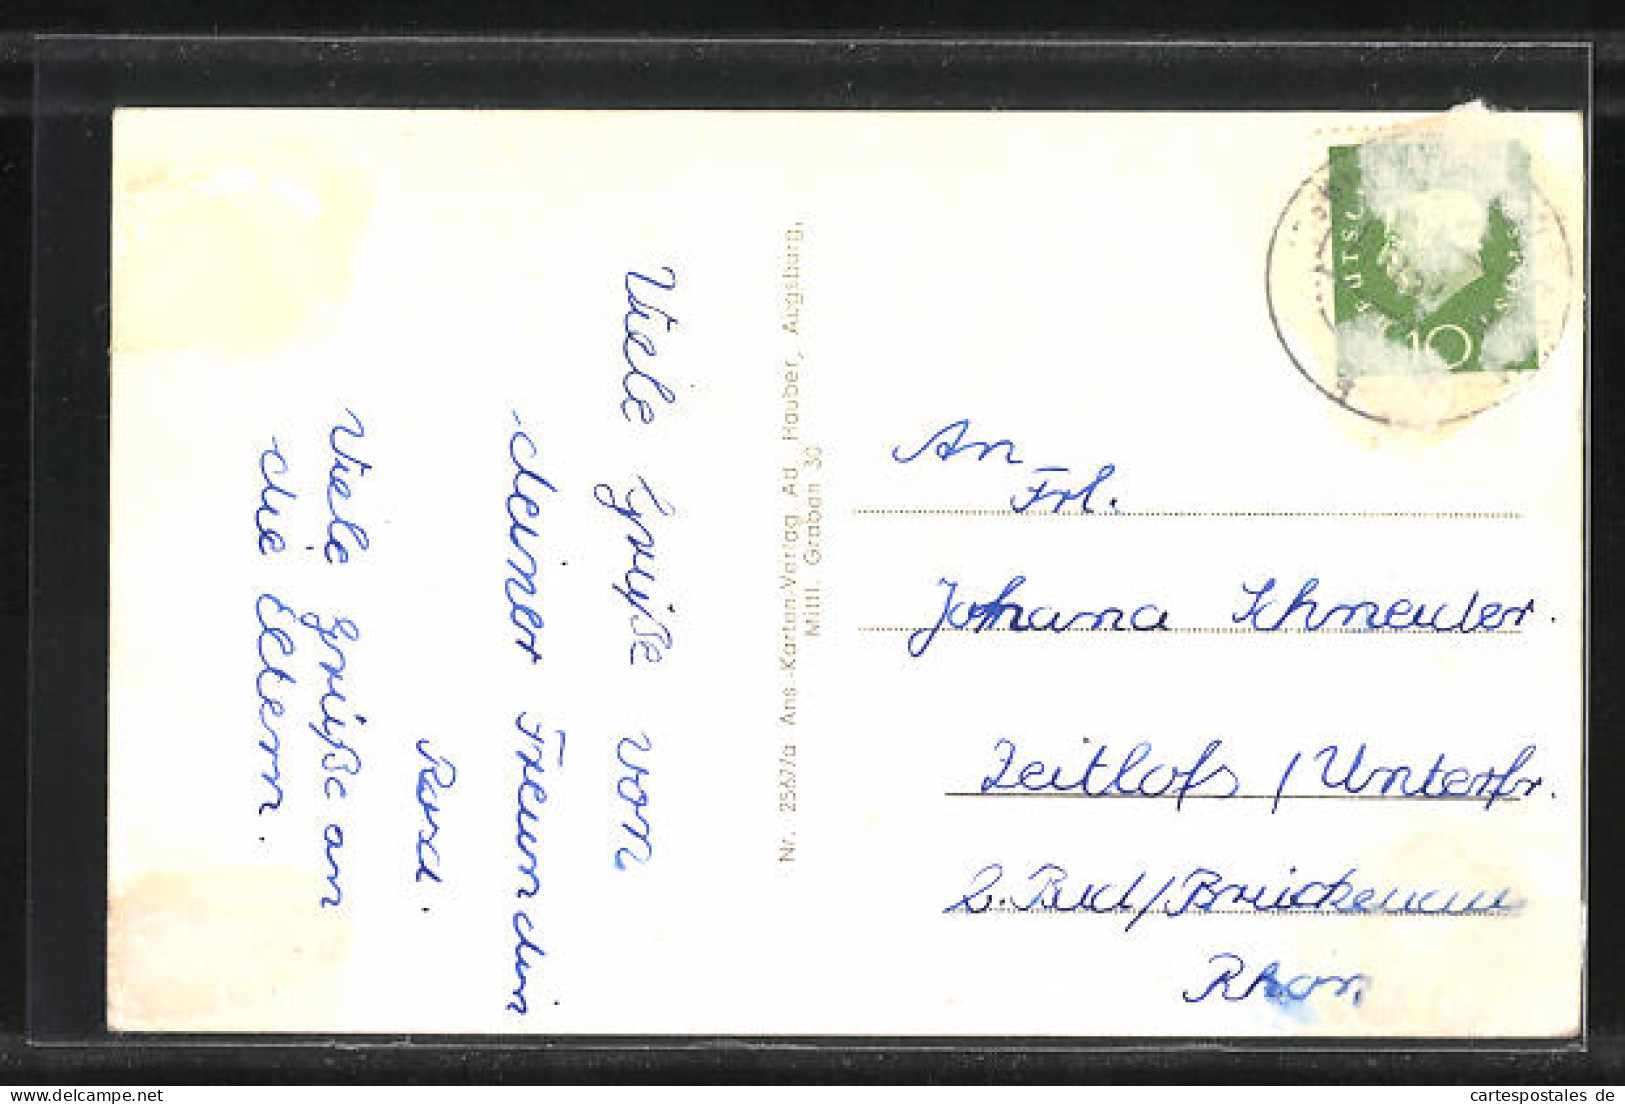 Viele Grüße von
deiner Freundin
Viele Grüße an
die Eltern.
Nr. 25677a Ans.-Karten-Verlag Ad. Hauber, Augsburg,
Mittl. Graben 30
10
An
Frl.
Johana Schneider.
Zeitlofs / Unterfr.
b. Bad/Brückenau
Rhön
cartespostales de